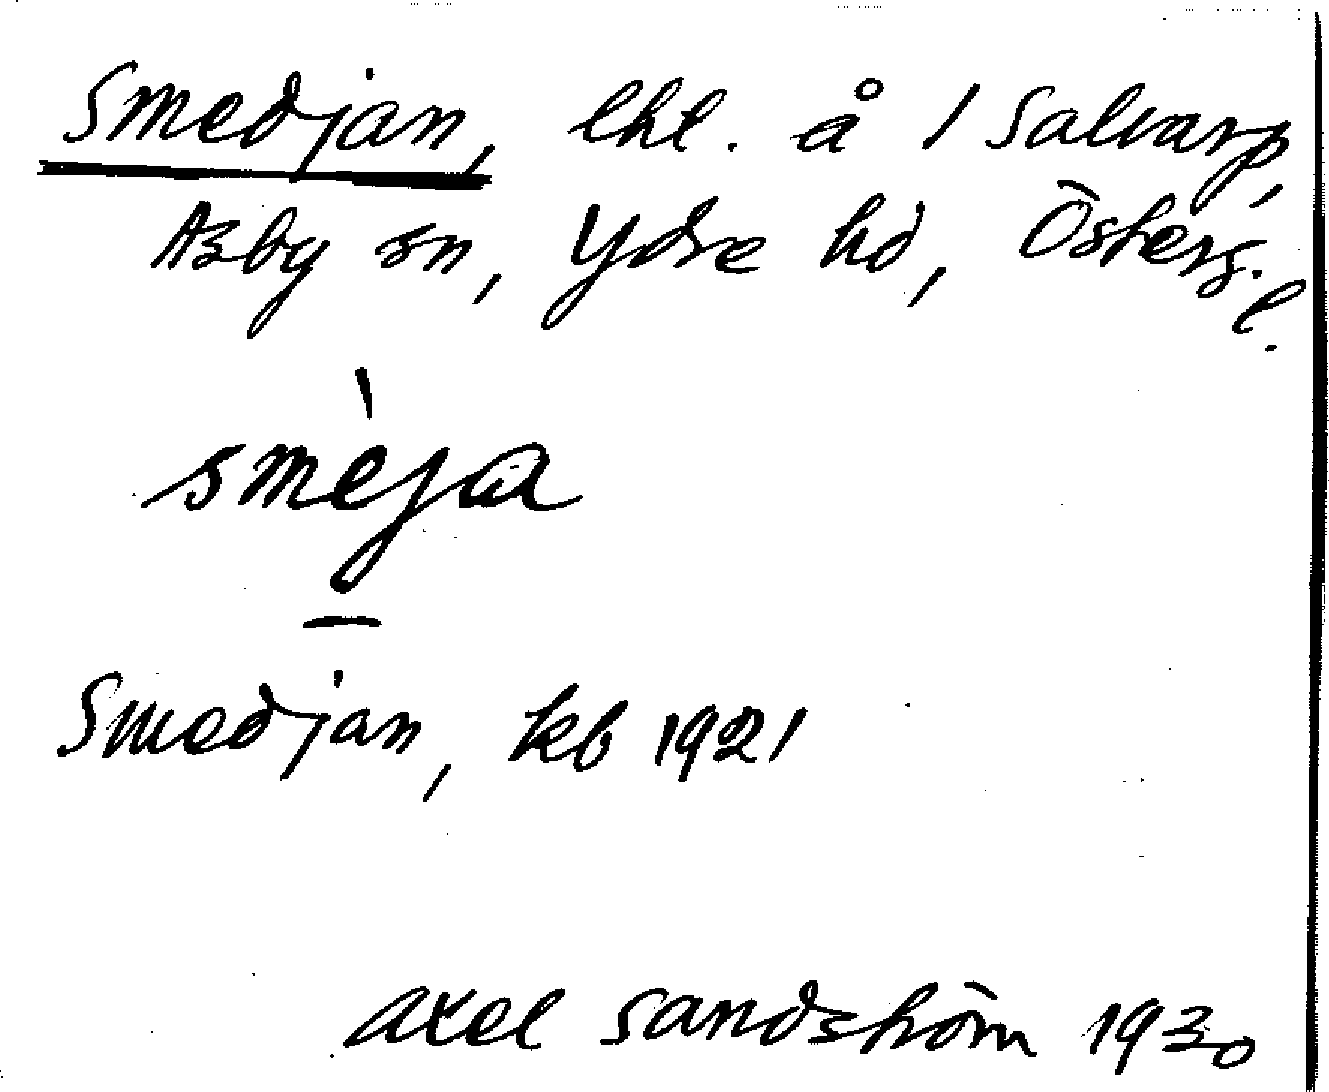 Smedjan, lht. å 1 Salvarp,
Asby sn, Ydre hd, Österg. l.
smèja
Smedjan, kb 1921
Axel Sandström 1930